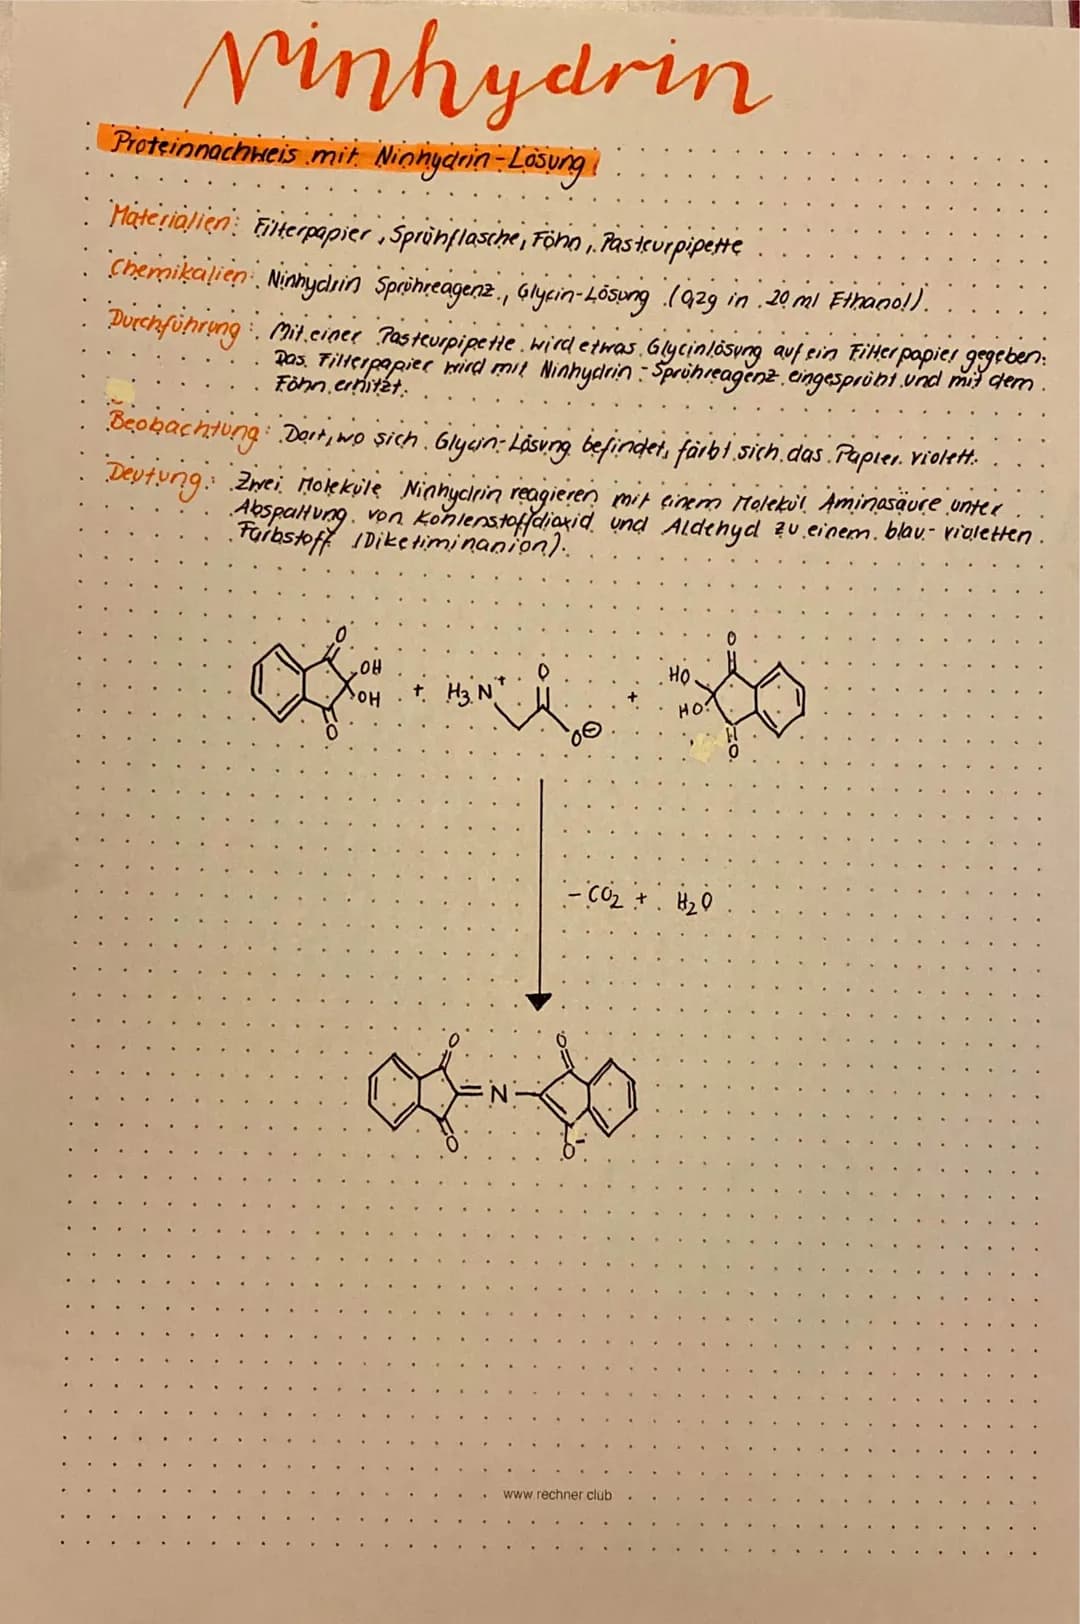 Ninhydrin
Proteinnachweis mit Ninhydrin-Lösung
Materialien: Filterpapier, Sprühflasche, Föhn, Pasteurpipette
Chemikalien: Ninhydrin Sprühreagenz, Glycin-Lösung (0,2g in 20 ml Ethanol).
Durchführung: Mit einer Pasteurpipette wird etwas Glycinlösung auf ein Filterpapier gegeben.
Das Filterpapier wird mit Ninhydrin-Sprühreagenz eingesprüht und mit dem
Föhn erhitzt.
Beobachtung: Dort, wo sich Glycin-Lösung befindet, färbt sich das Papier violett.
Deutung: Zwei Moleküle Ninhydrin reagieren mit einem Molekül Aminosäure unter
Abspaltung von Kohlenstoffdioxid und Aldehyd zu einem blau-violetten
Farbstoff (Diketiminanion).
O
OH
OH
O
+
H₃N⁺
O
O⊖
+
O
HO
HO
O
- CO₂ + H₂O
O
O
N
O
O⁻
www.rechner.club